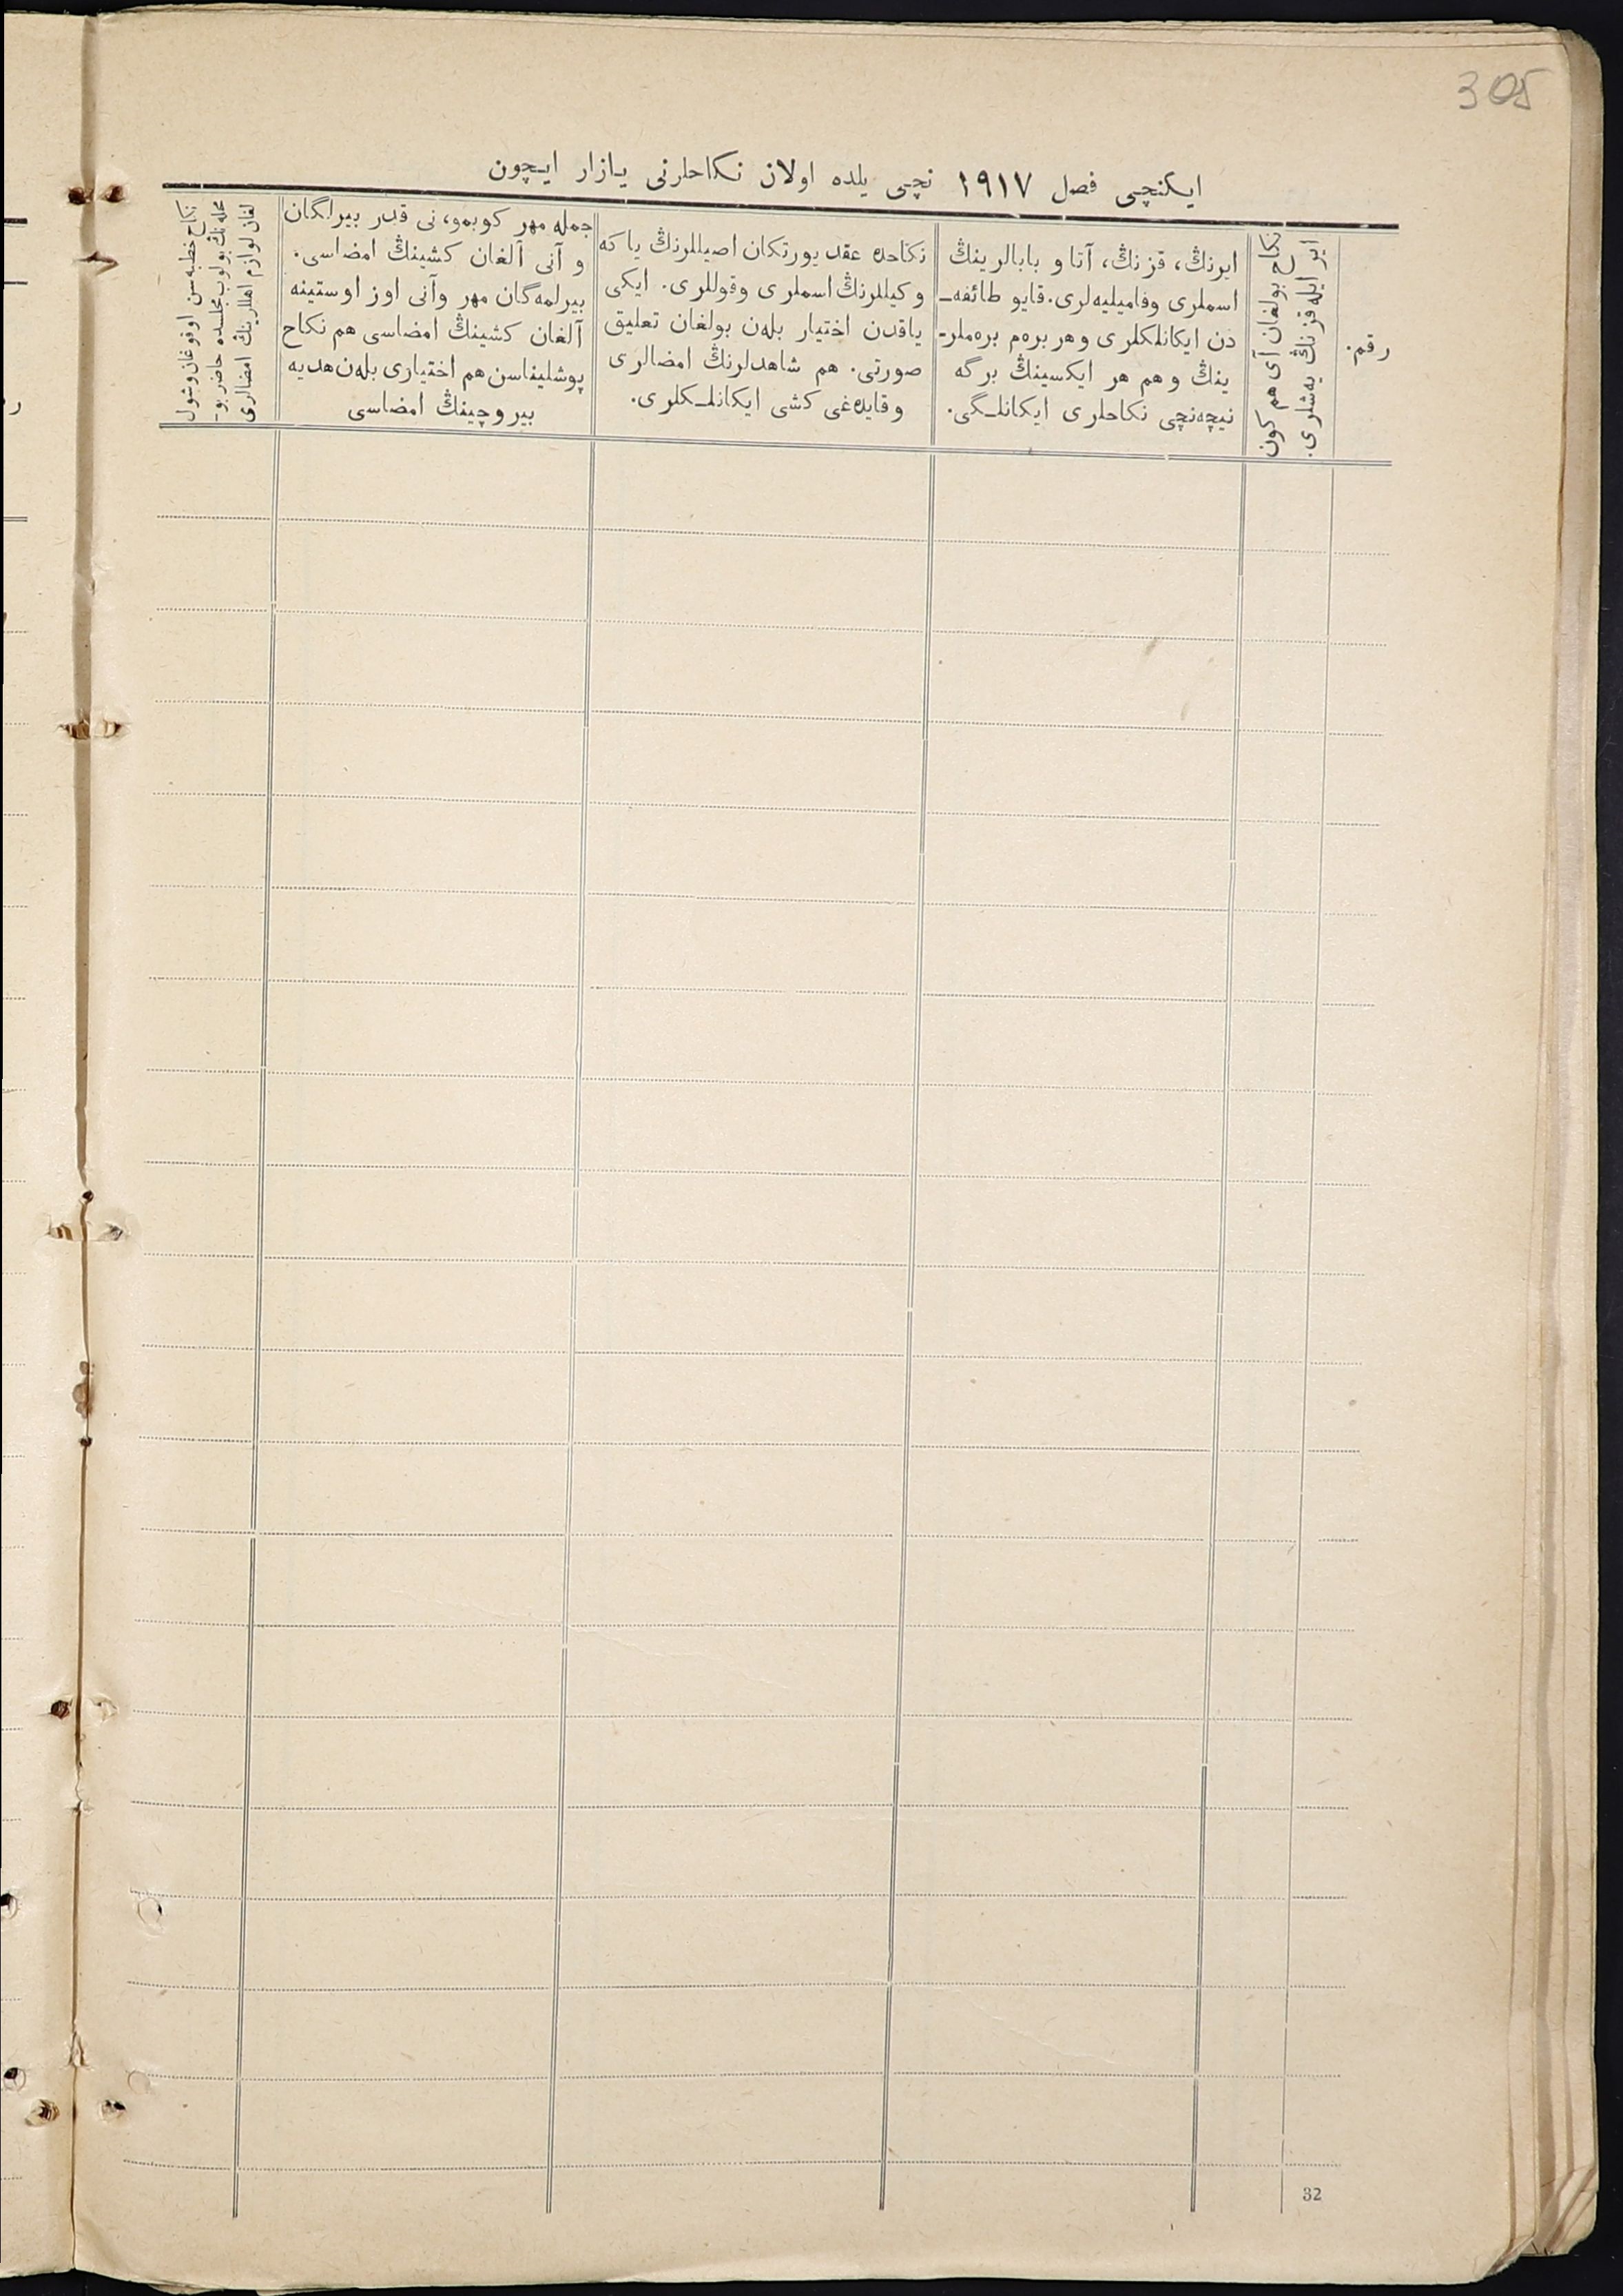 305
ایکنچی فصل ١٩١٧ نچی یلده اولان نکاحلرنی یازار ایچون
رقم.
ایر ایله قزنڭ یەشلری.
نکاح بولغان آی هم کون
ایرنڭ، قزنڭ، آتا و بابالرینڭ
اسملری وفامیلیەلری. قایو طائفه‌ـ
دن ایکانلکلری و هر برەم برەملر-
ینڭ و هم هر ایکسینڭ برگه
نیچەنچی نکاحلری ایکانلـگی.
نکاحده عقد یورتکان اصیللرنڭ یا که
و کیللرنڭ اسملری وقوللری. ایکی
یاقدن اختیار بلەن بولغان تعلیق
صورتی. هم شاهدلرنڭ امضالری
و قایدەغی کشی ایکانلـکلری.
جمله مهر کوبمو، نی قدر بیرلگان
و آنی آلغان کشینڭ امضاسی.
بیرلمەگان مهر وآنی اوز اوستینه
آلغان کشینڭ امضاسی هم نکاح
پوشلیناسن هم اختیاری بلەن هدیه
بیروچینڭ امضاسی
نکاح خطبەسن اوقوغان وشول
محلەنڭ بولوب مجلسده حاضر بو-
لغان لوازم اهللرینڭ امضالری
32